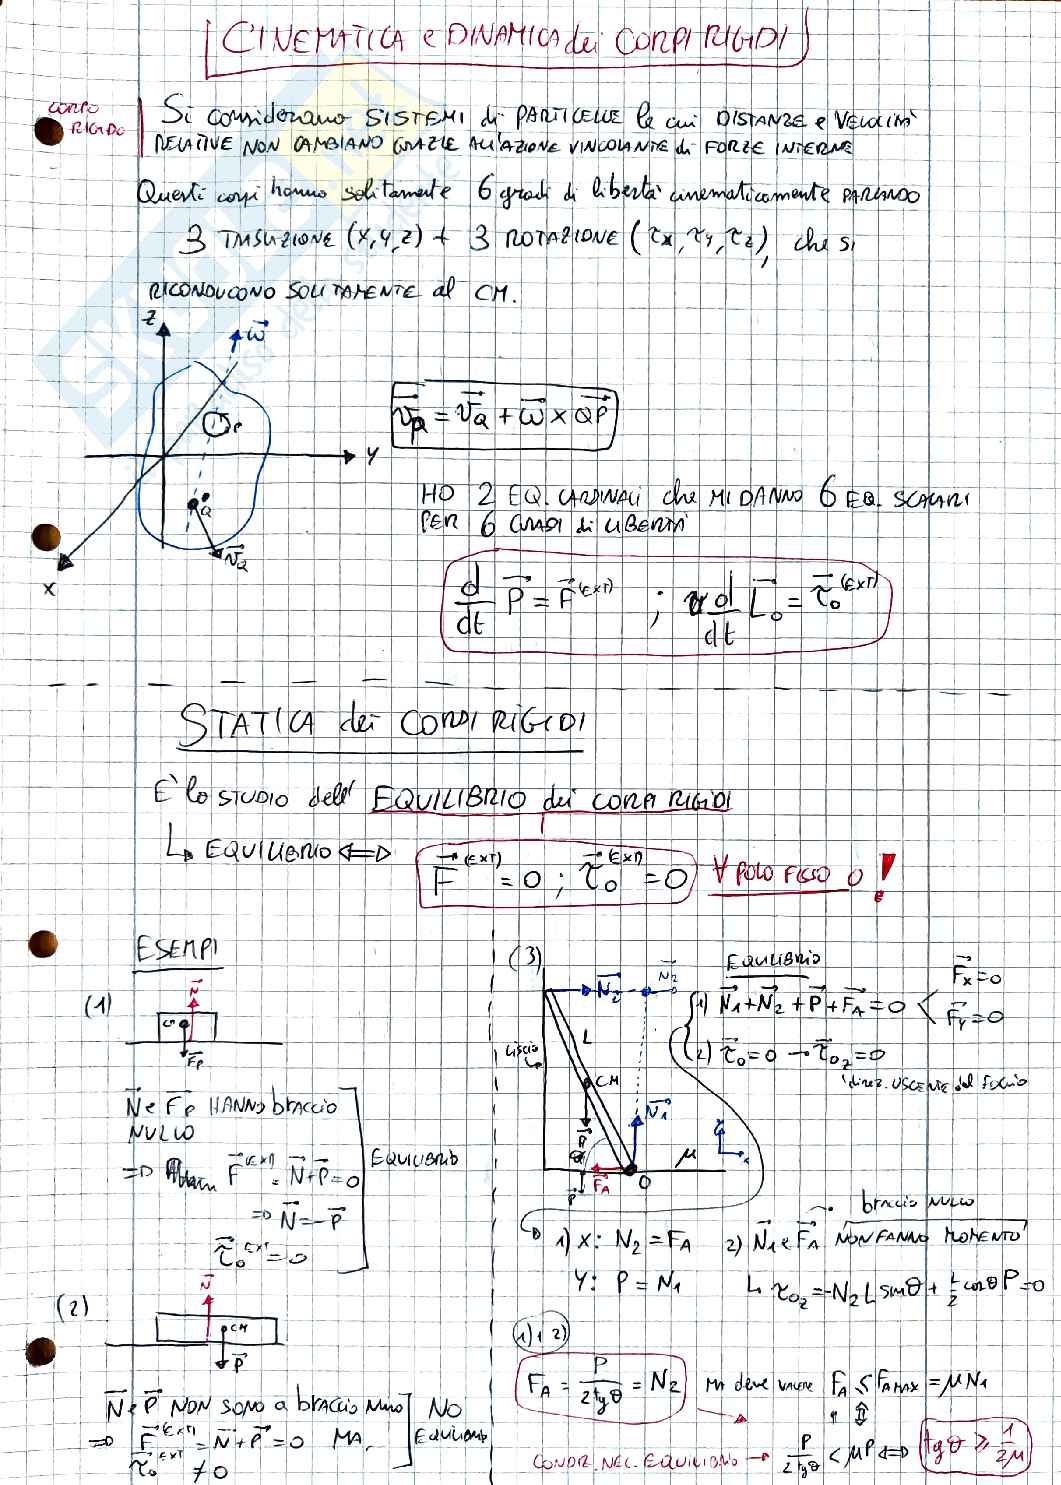 CINEMATICA e DINAMICA dei CORPI RIGIDI
CORPO RIGIDO
Si considerano SISTEMI di PARTICELLE le cui DISTANZE e VELOCITÀ
RELATIVE NON CAMBIANO GRAZIE ALL'AZIONE VINCOLANTE di FORZE INTERNE
Questi corpi hanno solitamente 6 gradi di libertà cinematicamente PARLANDO
3 TRASLAZIONE (x,y,z) + 3 ROTAZIONE (τx, τy, τz), che si
RICONDUCONO SOLITAMENTE al CM.
Z
ω⃗
P
Y
Q
v⃗Q
X
v⃗P = v⃗Q + ω⃗ × QP⃗
HO 2 EQ. CARDINALI che MI DANNO 6 EQ. SCALARI
PER 6 GRADI di LIBERTÀ
d/dt P⃗ = F⃗(EXT) ; d/dt L⃗o = τ⃗o(EXT)
STATICA dei CORPI RIGIDI
E' lo STUDIO dell' EQUILIBRIO dei CORPI RIGIDI
↳ EQUILIBRIO ⟺ F⃗(EXT) = 0 ; τ⃗o(EXT) = 0 ∀ POLO FISSO O !
ESEMPI
(1)
N⃗
F⃗p
N⃗ e F⃗p HANNO braccio
NULLO
⇒ F⃗(EXT) = N⃗+P⃗ = 0
⇒ N⃗ = -P⃗
τ⃗o EXT = 0
EQUILIBRIO
(2)
N⃗
CM
P⃗
N⃗ e P⃗ NON SONO a braccio NULLO
⇒ F⃗(EXT) = N⃗+P⃗ = 0 MA
τ⃗o EXT ≠ 0
NO
EQUILIBRIO
(3)
N⃗2
N⃗2
L
LISCIO
CM
N⃗1
P⃗
P⃗
F⃗A
O
μ
Y
X
EQUILIBRIO
1) N⃗1+N⃗2+P⃗+F⃗A = 0 < F⃗x = 0
F⃗y = 0
2) τ⃗o = 0 → τ⃗oz = 0
direz. USCENTE dal FOGLIO
1) X: N2 = FA
Y: P = N1
2) N⃗1 e F⃗A NON FANNO MOMENTO
braccio NULLO
↳ τoz = -N2 L sinθ + L/2 cosθ P = 0
1) + 2)
FA = P/2tgθ = N2
MA deve valere FA ≤ FAMAX = μN1
⇕
CONDIZ. NEC. EQUILIBRIO → P/2tgθ < μP ⟺ tgθ ≥ 1/2μ